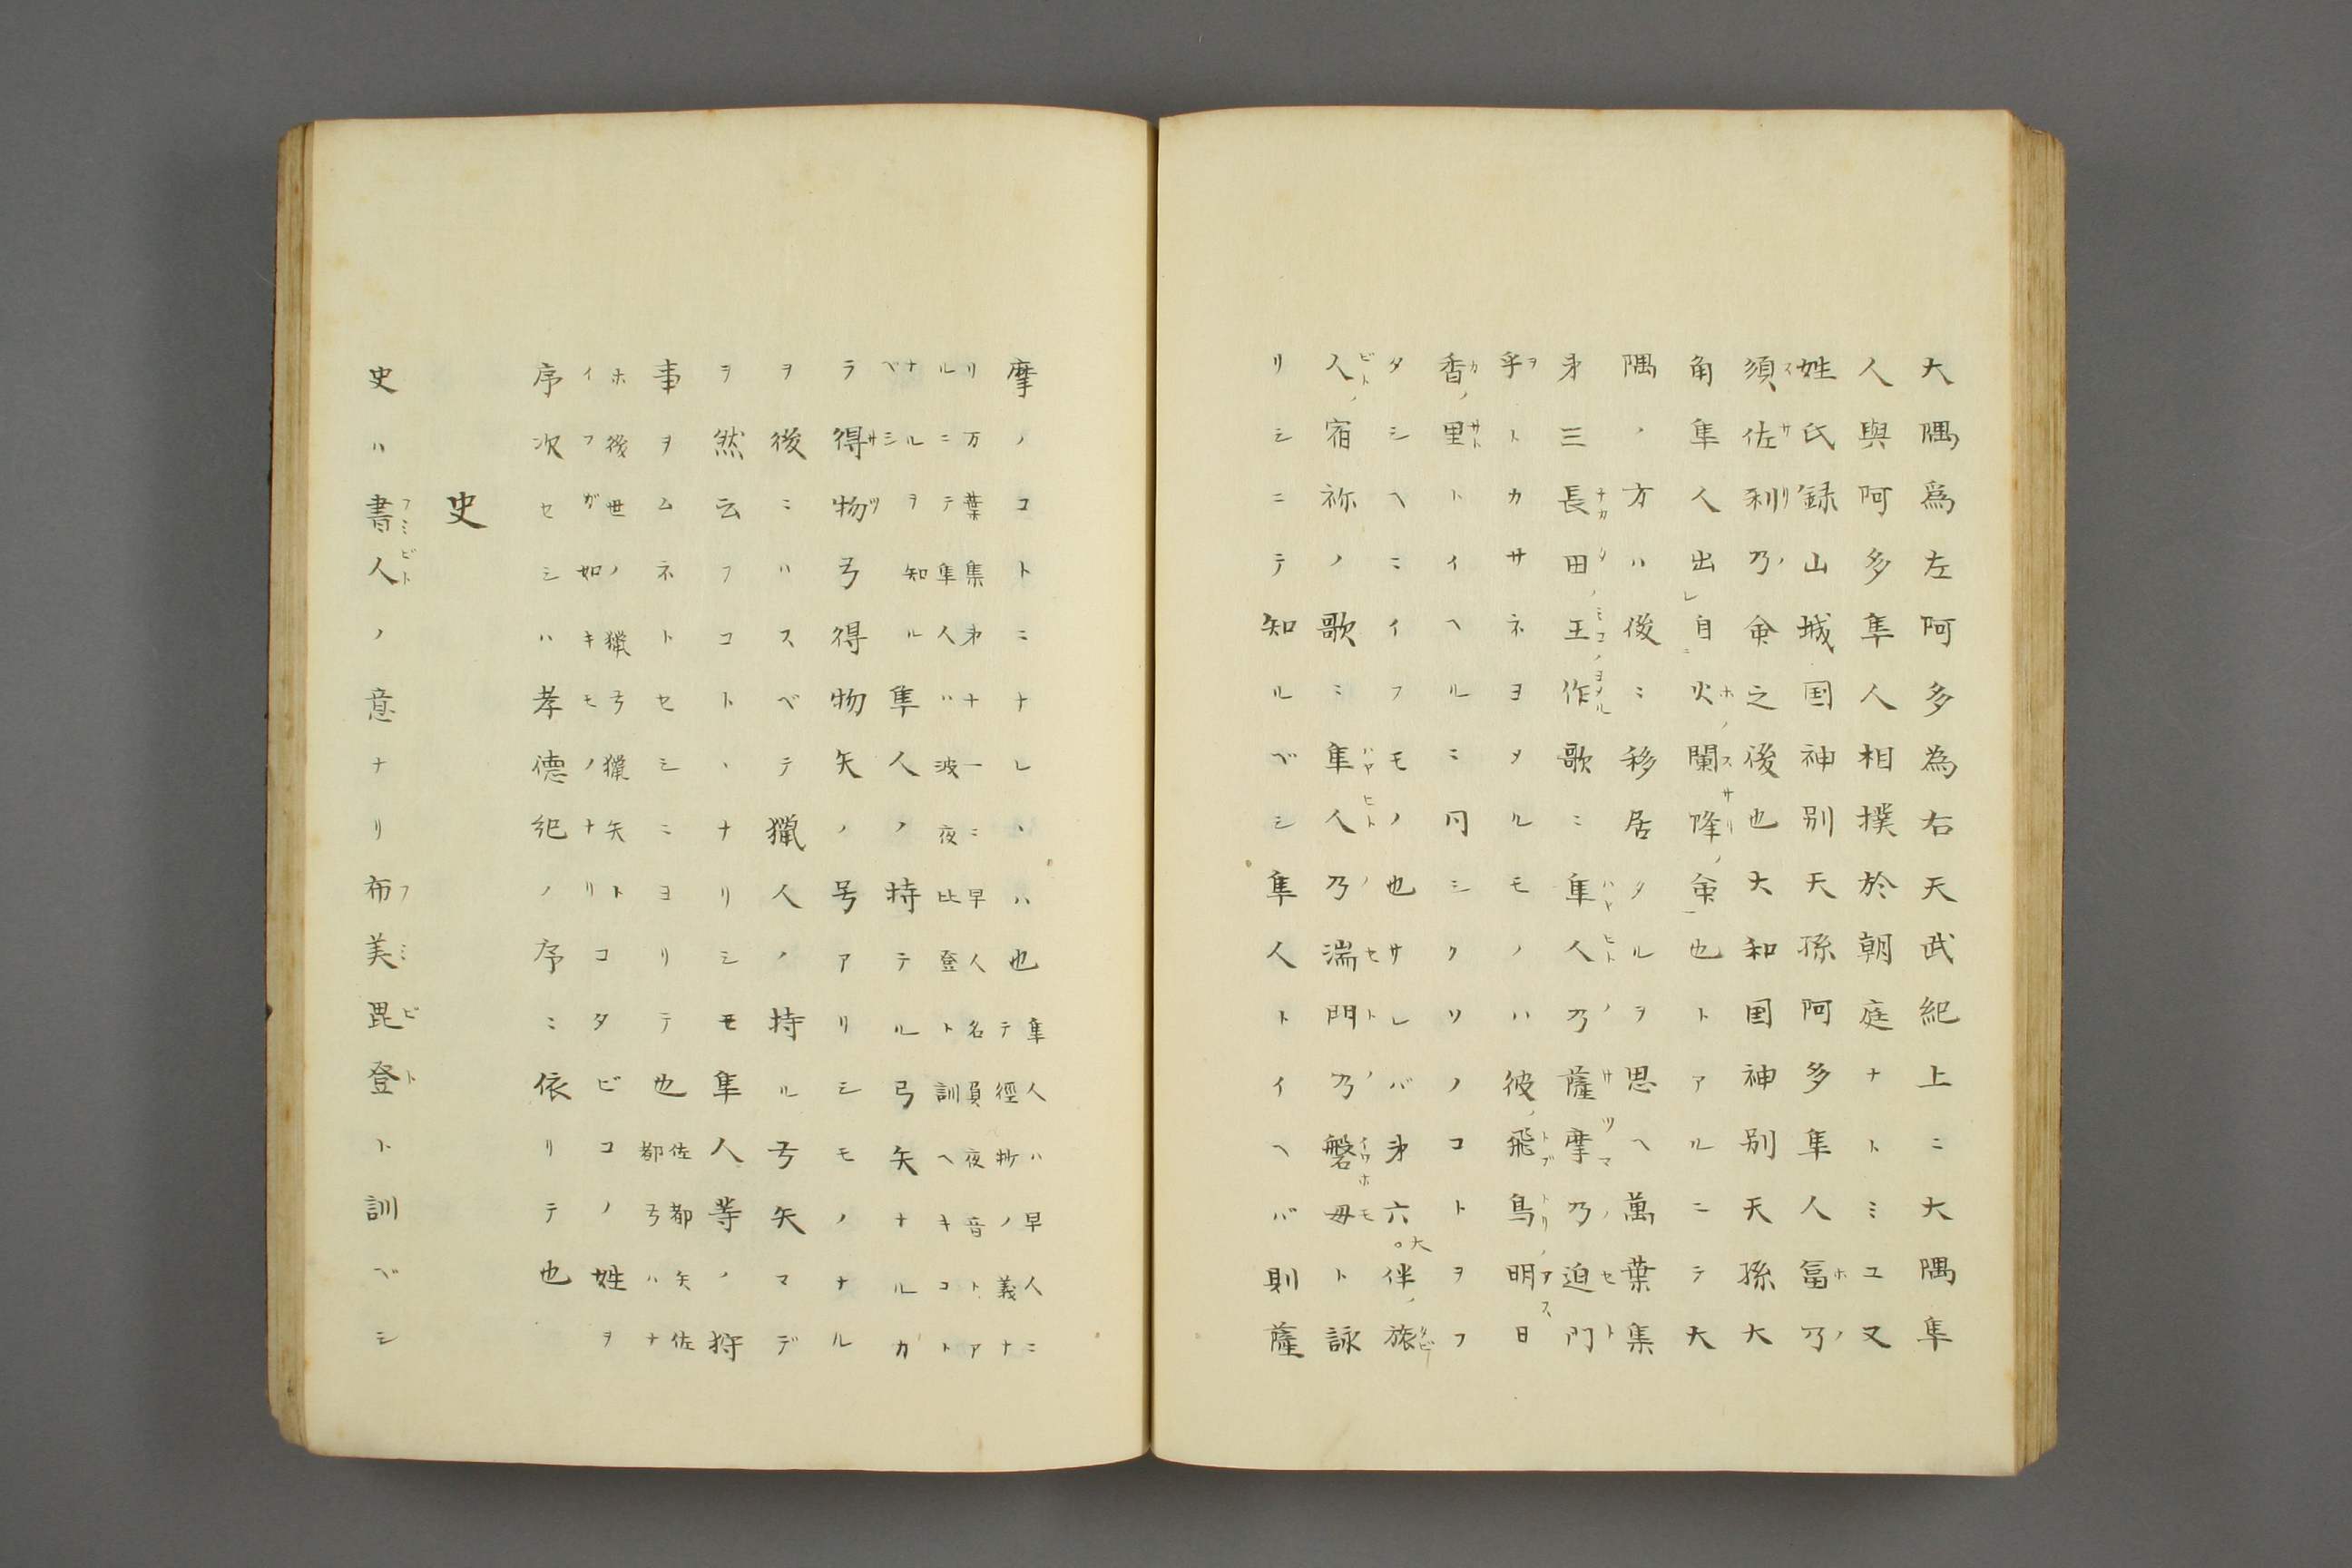 大隅爲左阿多為右天武紀上ニ大隅隼
人與阿多隼人相撲於朝庭ナトミユ又
姓氏録山城国神別天孫阿多隼人富乃
須佐利乃命之後也大和国神別天孫大
角隼人出自火闌降命也トアルニテ大
隅ノ方ハ後ニ移居タルヲ思ヘ萬葉集
第三長田王作歌ニ隼人乃薩摩乃迫門
乎トカサネヨメルモノハ彼飛鳥明日
香里トイヘルニ同シクソノコトヲフ
タシヘニイフモノ也サレバ第六大伴旅
人宿祢ノ歌ミ隼人乃湍門乃磐毋ト詠
リシニテ知ルベシ隼人トイヘバ則薩
摩ノコトニナレヽハ也隼人ハ早人ニ
テ徑抄ノ義ナ
リ万葉集第十一ニ早人名負夜音トア
ルニテ隼人ハ波夜比登ト訓ヘキコト
ナルヲ知ル
ベシ隼人ノ持テル弓矢ナルカ
ラ得物弓得物矢ノ号アリシモノナル
ヲ後ニハスベテ獵人ノ持ル弓矢マデ
ヲ然云フコトヽナリシモ隼人等ノ狩
事ヲムネトセシニヨリテ也佐都矢佐
都弓ハナ
ホ後世ノ獵弓獵矢ト
イフガ如キモノナリコタビコノ姓ヲ
序次セシハ孝德紀ノ序ニ依リテ也
史
史ハ書人ノ意ナリ布美毘登ト訓ベシ